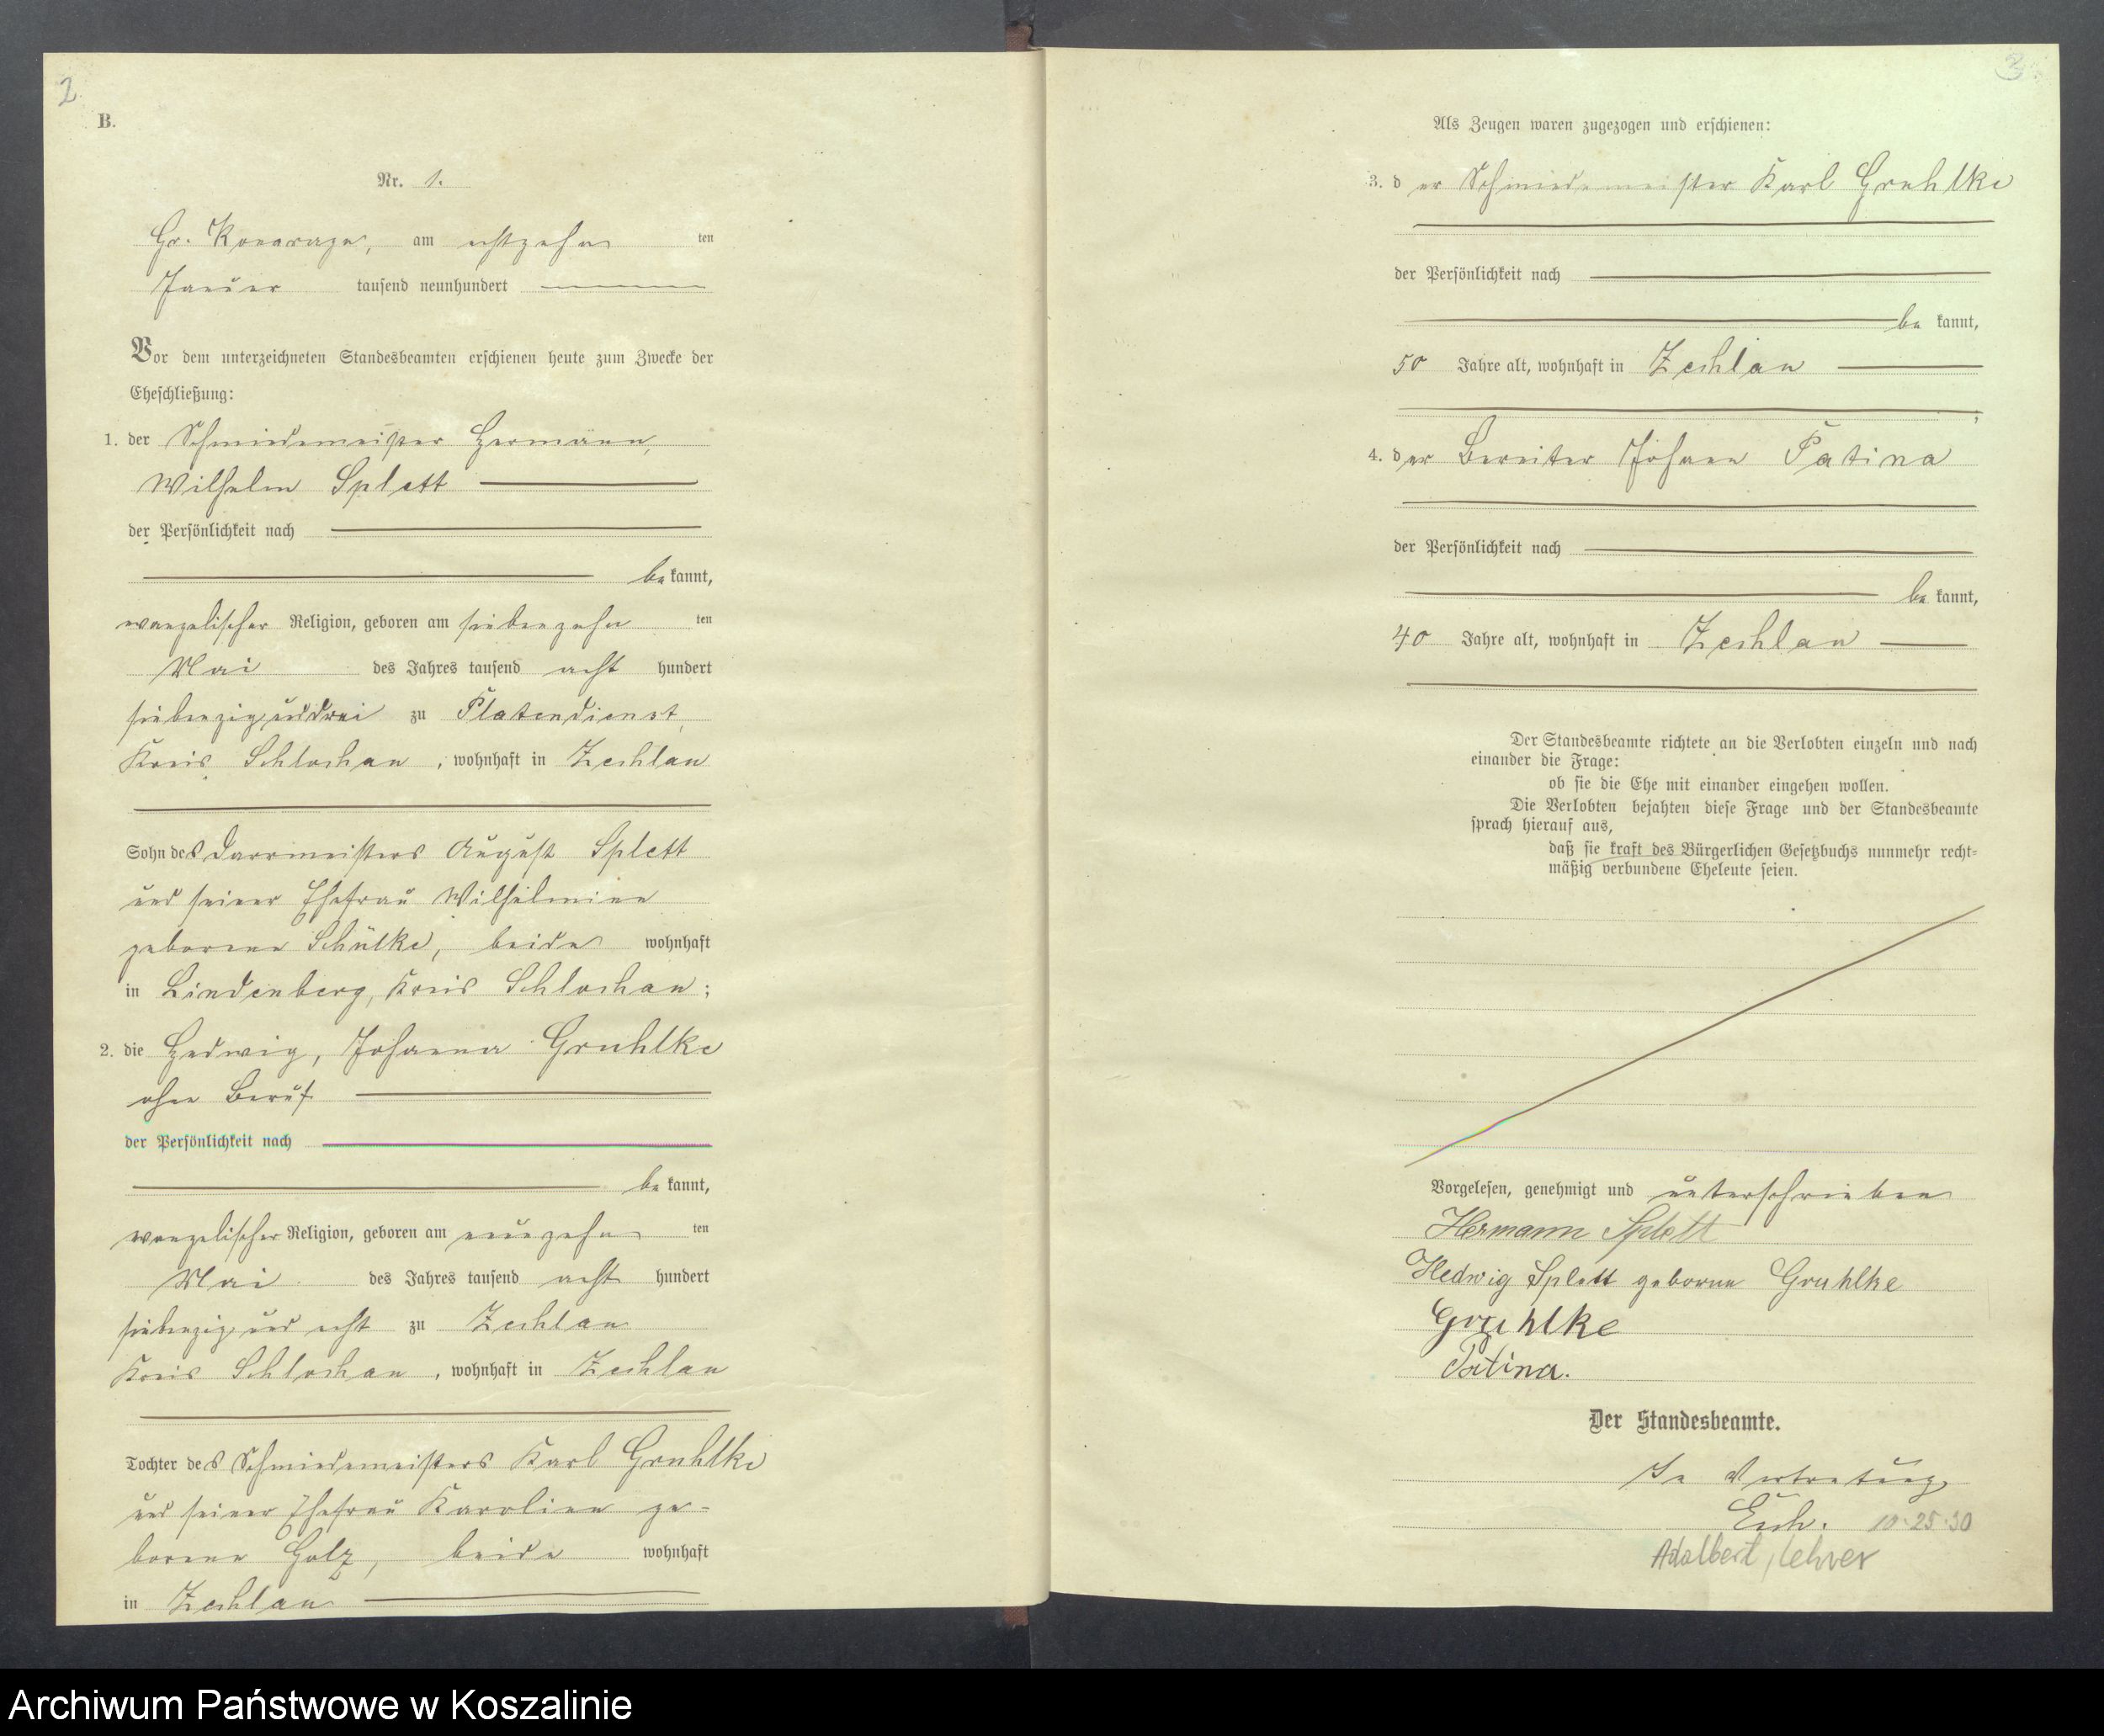 2
B.
Nr. 1.
Gr. Konarczyn, am achtzehn ten
Januar tausend neunhundert
Vor dem unterzeichneten Standesbeamten erschienen heute zum Zwecke der
Eheschließung:
1. der Schmiedemeister Hermann,
Wilhelm Splett
der Persönlichkeit nach
be kannt,
evangelischer Religion, geboren am siebenzehn ten
Mai des Jahres tausend acht hundert
siebenzig und drei zu Platendienst,
Kreis Schlochau, wohnhaft in Zechlau
Sohn des Darrmeisters August Splett
und seiner Ehefrau Wilhelmine
geborene Schülke, beide wohnhaft
in Lindenberg, Kreis Schlochau;
2. die Hedwig, Johanna Gruhlke
ohne Beruf
der Persönlichkeit nach
be kannt,
evangelischer Religion, geboren am neunzehn ten
Mai des Jahres tausend acht hundert
siebenzig und acht zu Zechlau
Kreis Schlochau, wohnhaft in Zechlau
Tochter des Schmiedemeisters Karl Gruhlke
und seiner Ehefrau Karoline ge-
borene Golz, beide wohnhaft
in Zechlau
Als Zeugen waren zugezogen und erschienen:
3. d er Schmiedemeister Karl Gruhlke
der Persönlichkeit nach
be kannt,
50 Jahre alt, wohnhaft in Zechlau
;
4. d er Bereiter Johann Patina
der Persönlichkeit nach
be kannt,
40 Jahre alt, wohnhaft in Zechlau
Der Standesbeamte richtete an die Verlobten einzeln und nach
einander die Frage:
ob sie die Ehe mit einander eingehen wollen.
Die Verlobten bejahten diese Frage und der Standesbeamte
sprach hierauf aus,
daß sie kraft des Bürgerlichen Gesetzbuchs nunmehr recht-
mäßig verbundene Eheleute seien.
Vorgelesen, genehmigt und unterschrieben
Hermann Splett
Hedwig Splett geborene Gruhlke
Gruhlke
Patina.
Der Standesbeamte.
In Vertretung
10.25.30
Adalbert, Lehrer
Archiwum Państwowe w Koszalinie